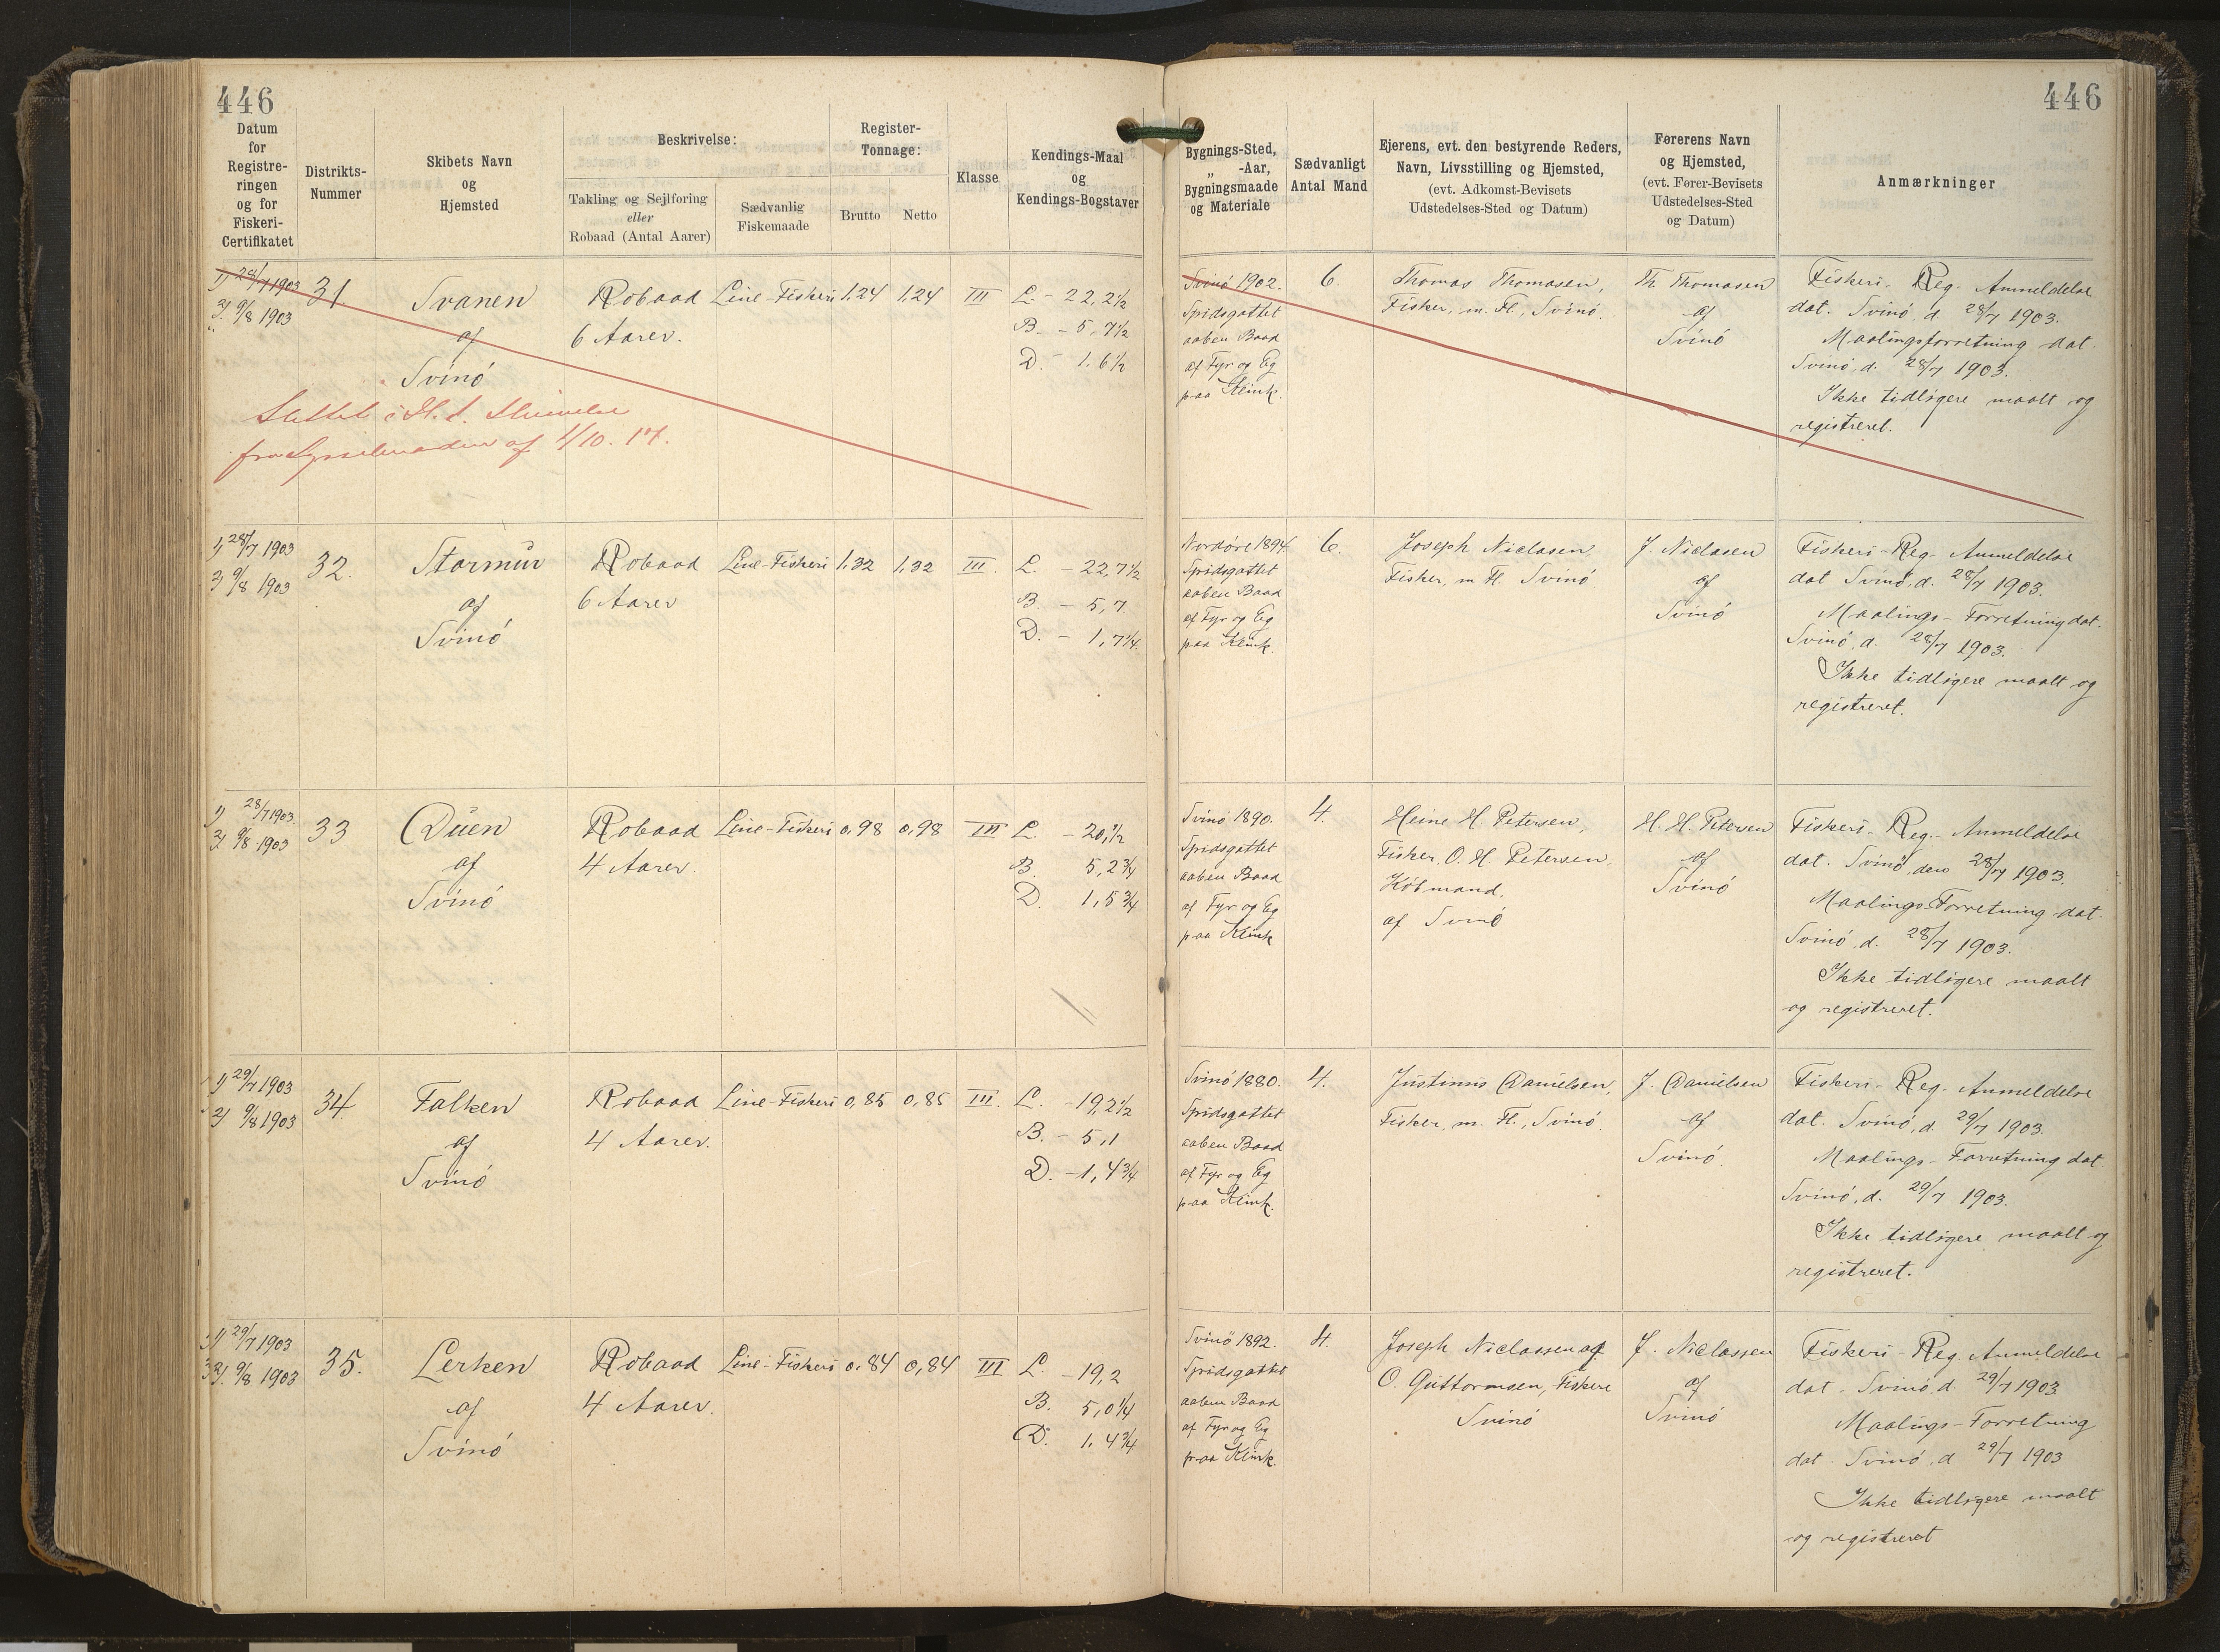 446
446
Datum
for
Registre-
ringen
og for
Fiskeri-
Certifikatet
Distrikts-
Nummer
Skibets Navn
og
Hjemsted
Beskrivelse:
Takling og Sejlføring
eller
Robaad (Antal Aarer)
Sædvanlig
Fiskemaade
Register-
Tonnage:
Brutto
Netto
Klasse
Kendings-Maal
og
Kendings-Bogstaver
Bygnings-Sted,
„ -Aar,
Bygningsmaade
og Materiale
Sædvanligt
Antal Mand
Ejerens, evt. den bestyrende Reders,
Navn, Livsstilling og Hjemsted,
(evt. Adkomst-Bevisets
Udstedelses-Sted og Datum)
Førerens Navn
og Hjemsted,
(evt. Fører-Bevisets
Udstedelses-Sted
og Datum)
Anmærkninger
1) 28/7 1903
2) 9/8 1903
31.
Svanen
af
Svinó
Robaad
6 Aarer.
Line-Fiskeri
1,24
1,24
III
L. - 22,2½
B. - 5,7½
D. - 1,6½
Slettet i H. t. Skrivelse
fra Sysselmanden af 4/10. 17.
Svinó 1902.
Spidsgattet
aaben Baad
af Fyr og Eg
paa Klink.
6.
Thomas Thomasen,
Fisker, m. Fl., Svinó.
Th. Thomasen
af
Svinó
Fiskeri-Reg-Anmeldelse
dat. Svinó, d. 28/7 1903.
Maalingsforretning dat.
Svinó, d. 28/7 1903.
Ikke tidligere maalt og
registreret.
1) 28/7 1903
2) 9/8 1903
32.
Stormur
af
Svinó
Robaad
6 Aarer
Line-Fiskeri
1,32
1,32
III.
L. - 22,7½
B. - 5,7
D. - 1,7¼
Nordöre 1894
Spidsgattet
aaben Baad
af Fyr og Eg
paa Klink.
6.
Joseph Niclasen
Fisker, m Fl. Svinó
J. Niclasen
af
Svinó
Fiskeri-Reg-Anmeldelse
dat Svinó, d. 28/7 1903.
Maalings-Forretning dat.
Svinó, d. 28/7 1903.
Ikke tidligere maalt og
registreret.
1) 28/7 1903.
2) 9/8 1903
33
Duen
af
Svinó
Robaad
4 Aarer.
Line-Fiskeri
0,98
0,98
III
L. - 20,½
B. 5,2¾
D. 1,5¾
Svinó 1890.
Spidsgattet
aaben Baad
af Fyr og Eg
paa Klink
4.
Heine H. Petersen,
Fisker, O. H. Petersen,
Köbmand,
af Svinó
H. H. Petersen
af
Svinó
Fiskeri-Reg.-Anmeldelse
dat. Svinó, den 28/7 1903.
Maalings-Forretning dat.
Svinó, d. 28/7 1903.
Ikke tidligere maalt
og registreret.
1) 29/7 1903
2) 9/8 1903
34
Falken
af
Svinó
Robaad
4 Aarer.
Line-Fiskeri
0,85
0,85
III.
L. - 19,2½
B. - 5,1
D. - 1,4¾
Svinó 1880.
Spidsgattet
aaben Baad
af Fyr og Eg
paa Klink.
4.
Justinus Danielsen,
Fisker, m. Fl., Svinó.
J. Danielsen
af
Svinó
Fiskeri-Reg. Anmeldelse
dat. Svinó, d. 29/7 1903.
Maalings-Forretning dat
Svinó, d. 29/7 1903.
Ikke tidligere maalt og
registreret.
1) 29/7 1903
2) 9/8 1903
35.
Lerken
af
Svinó
Robaad
4 Aarer.
Line-Fiskeri
0,84
0,84
III
L. - 19,2
B. 5,0¼
D. 1,4¾
Svinö 1892.
Spidsgattet
aaben Baad
af Fyr og Eg
paa Klink.
4.
Joseph Niclassen og
O. Guttormsen, Fiskere
Svinó
J. Niclassen
af
Svinó
Fiskeri-Reg. Anmeldelse
dat. Svinó, d. 29/7 1903
Maalings-Forretning
dat. Svinó, d 29/7 1903
Ikke tidligere maalt
og registreret